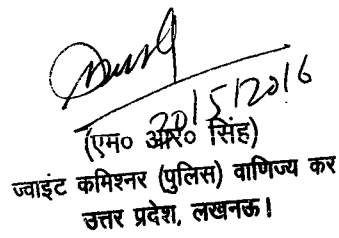 20/5/2016
(एम० आर० सिंह)
ज्वाइंट कमिश्नर (पुलिस) वाणिज्य कर
उत्तर प्रदेश, लखनऊ।